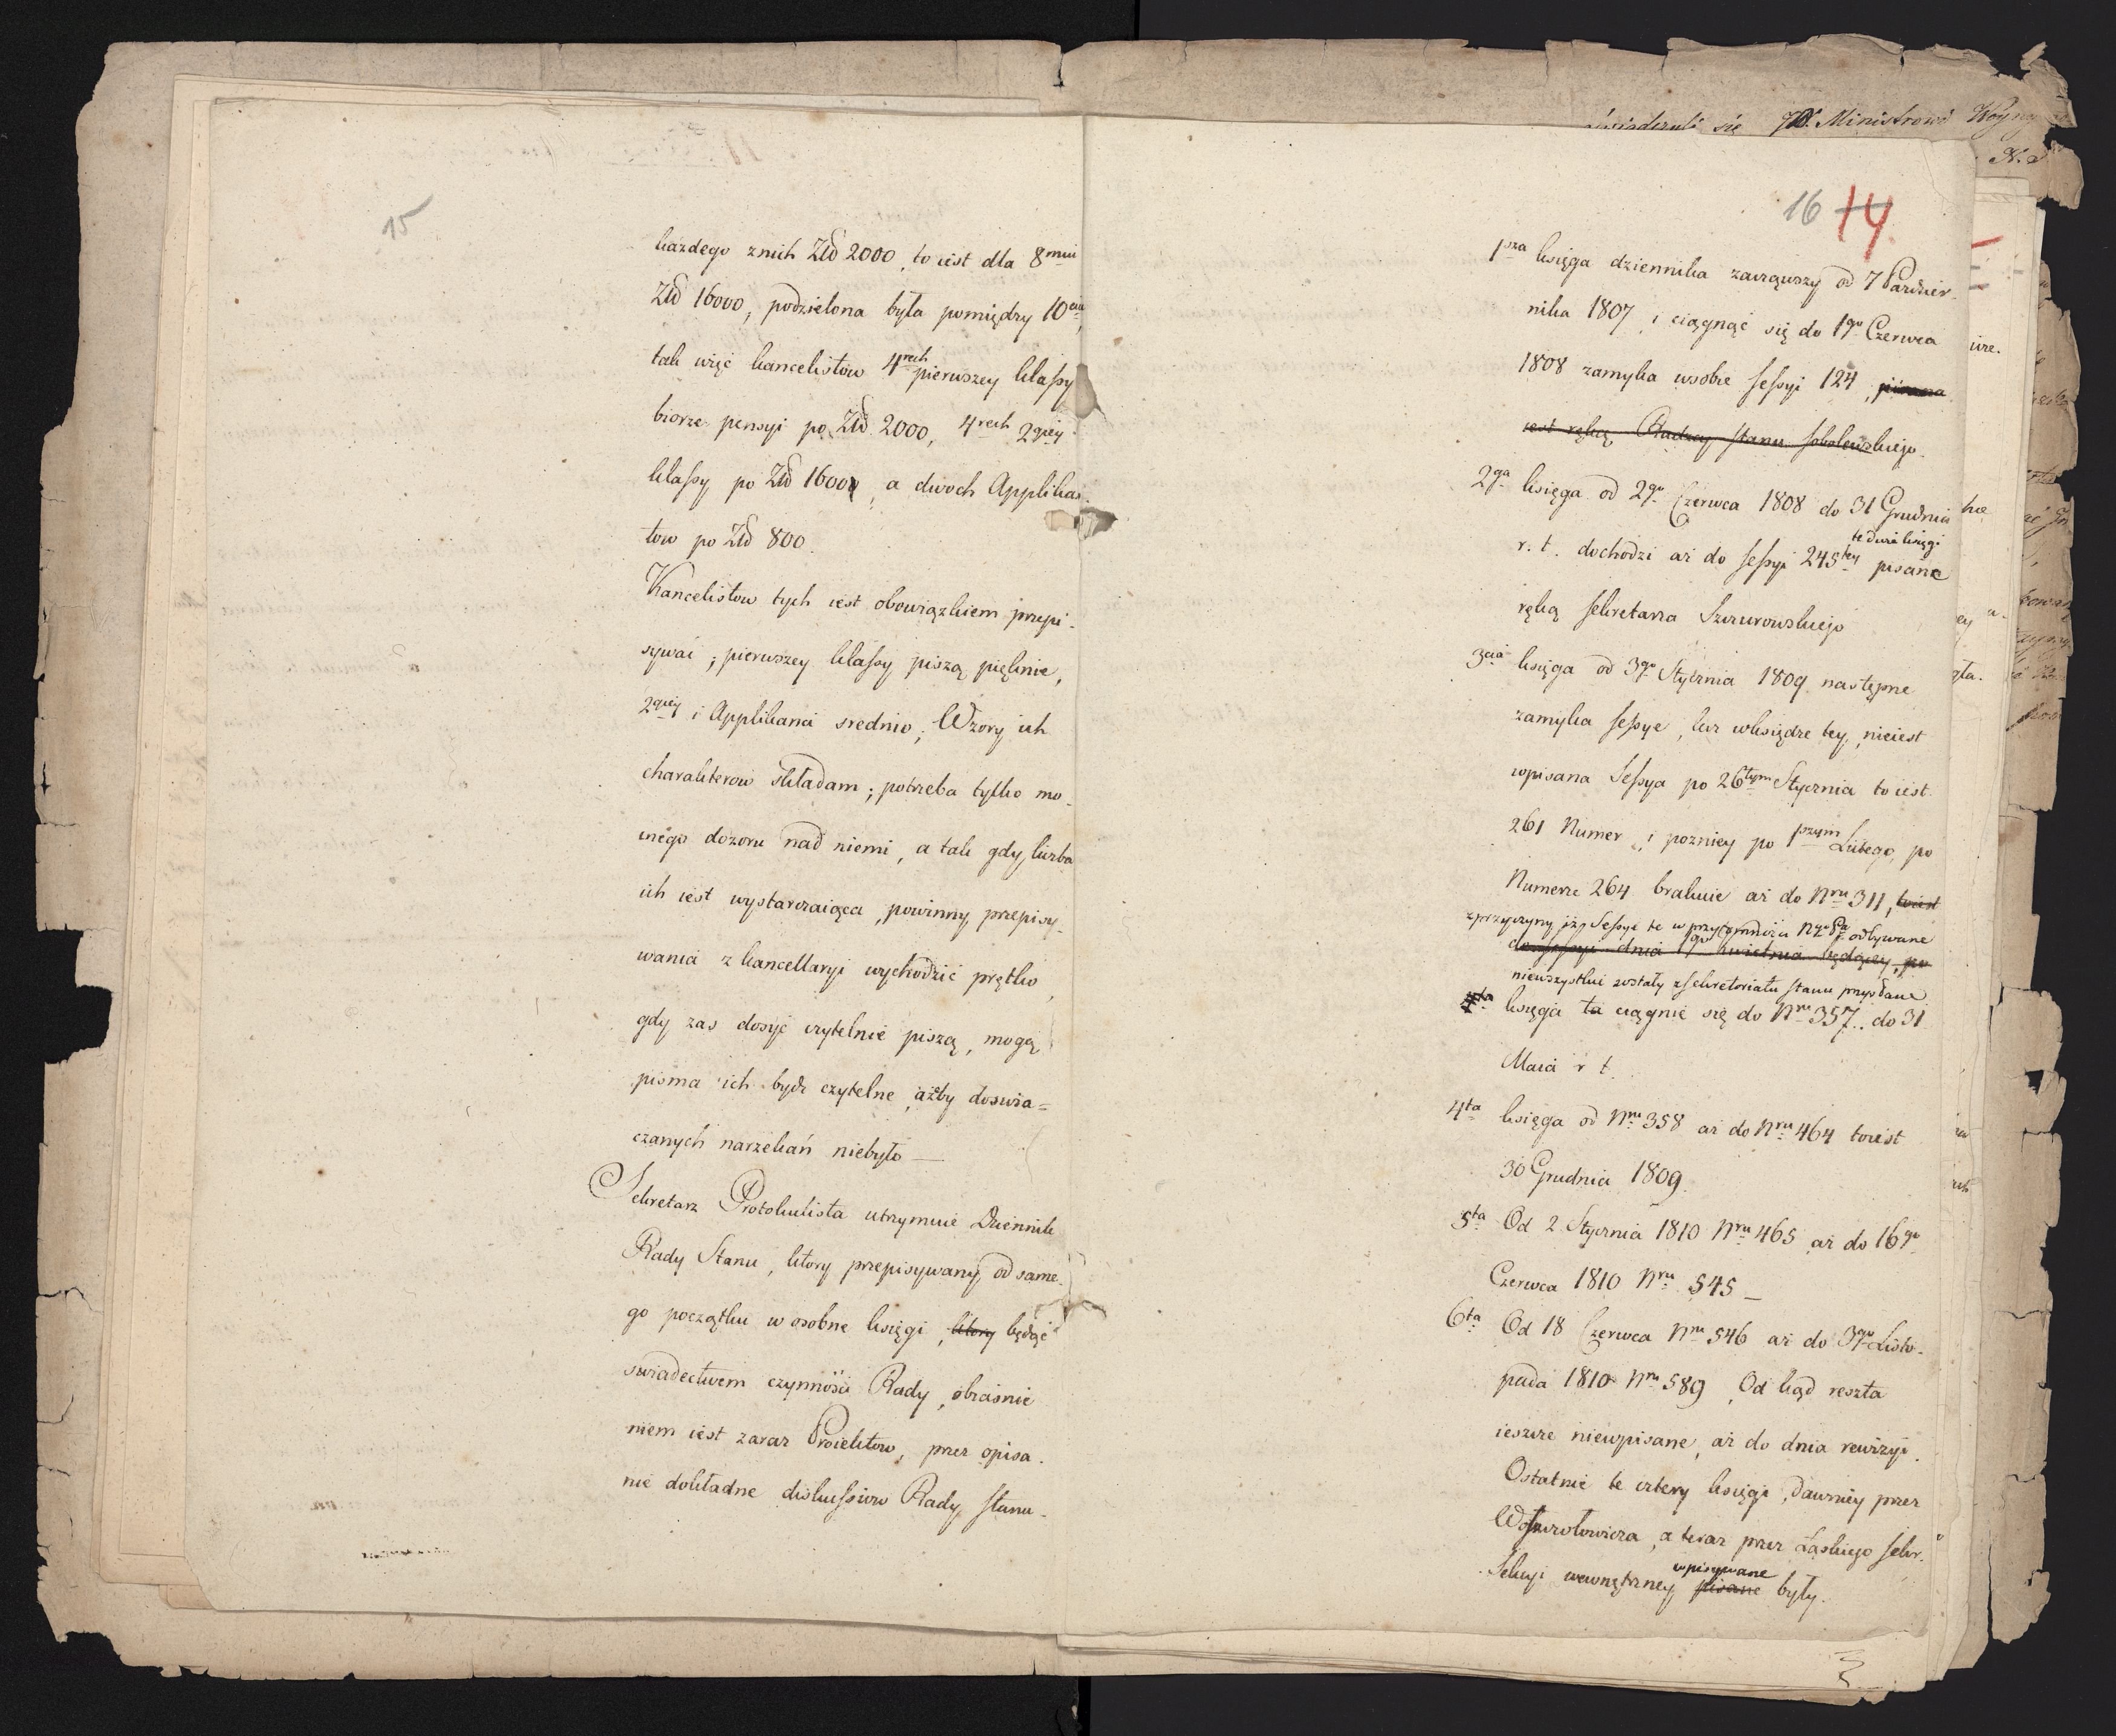 15
każdego znich Złł 2000, to iest dla 8miu
Złł 16000, podzielona była pomiędzy 10cia,
tak więc kancelistow 4rech pierwszey klassy
biorze pensyi po Złł 2000, 4rech 2giey
klassy po Złł 1600, a dwoch Applikan-
tow po Złł 800.
Kancelistow tych iest obowiązkiem przepi-
sywać; pierwszey klassy piszą pięknie,
2giey i Applikanci srednio; Wzory ich
charakterow składam; potrzeba tylko mo-
cnego dozoru nad niemi, a tak gdy liczba
ich iest wystarczaiąca, powinny przepisy-
wania z kancellaryi wychodzić prętko,
gdy zas dosyć czytelnie piszą, mogą
pisma ich bydz czytelne, ażby doswia=
czanych narzekań niebyło —
Sekretarz Protokulista utrzymuie Dziennik
Rady Stanu, ktory przepisywany od same-
go początku w osobne księgi, ktory będąc
swiadectwem czynności Rady, obiasnie
niem iest zaraz Proiektow, przez opisa-
nie dokładne diskussiow Rady Stanu.
świadczyli się JW. Ministrowi Woyny
N. 2
16 14
1sza księga dziennika zacząwszy od 7 Pazdzier-
nika 1807 i ciągnąć się do 1go Czerwca
1808 zamyka wsobie sessyi 124, pisana
iest ręką Radzcy stanu Sobolewskiego.
2ga księga od 2go Czerwca 1808 do 31 Grudnia
te dwie księgi
r. t. dochodzi aż do sessyi 245tey pisane
ręką sekretarza Szczurowskiego
3cia księga od 3go Stycznia 1809 następne
zamyka sessye, lecz wksiędze tey, nieiest
wpisana Sessya po 26tym Stycznia to iest
261 Numer, i pozniey po 1szym Lutego, po
Numerze 264 brakuie aż do Nru 311, toiest
zprzyczyny iż Sessye te w przytomności Ngo Pa odbywane
do sessyi dnia 1go kwietnia będącey, po
niewszystkie zostały z sekretoriatu stanu przysłane
4ta księga ta ciągnie się do Nru 357.. do 31
Maia r t.
4ta księga od Nru 358 aż do Nru 464 toiest
30 Grudnia 1809.
5ta Od 2 Stycznia 1810 Nru 465 aż do 16go
Czerwca 1810 Nru 545 —
6ta Od 18 Czerwca Nru 546 aż do 3go Listo-
pada 1810 Nru 589, Od kąd reszta
ieszcze niewpisane, aż do dnia rewizyi.
Ostatnie te cztery księgi, dawniey przez
a teraz przez Łaskiego sekr.
wpisywane
Sekcyi wewnętrzney pisane były.